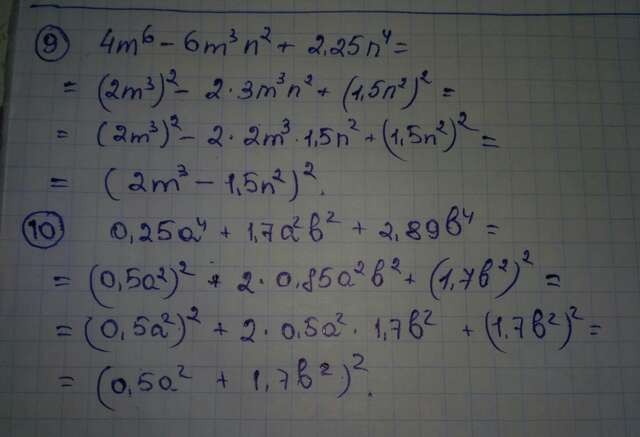 ⑨ 4m⁶ − 6m³n² + 2,25n⁴ =
= (2m³)² − 2·3m³n² + (1,5n²)² =
= (2m³)² − 2·2m³·1,5n² + (1,5n²)² =
= (2m³ − 1,5n²)².
⑩ 0,25a⁴ + 1,7a²b² + 2,89b⁴ =
= (0,5a²)² + 2·0,85a²b² + (1,7b²)² =
= (0,5a²)² + 2·0,5a²·1,7b² + (1,7b²)² =
= (0,5a² + 1,7b²)².